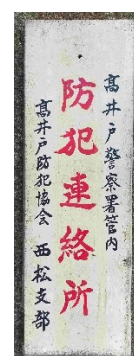 髙井戸警察署管内
防犯連絡所
髙井戸防犯協会 西松支部